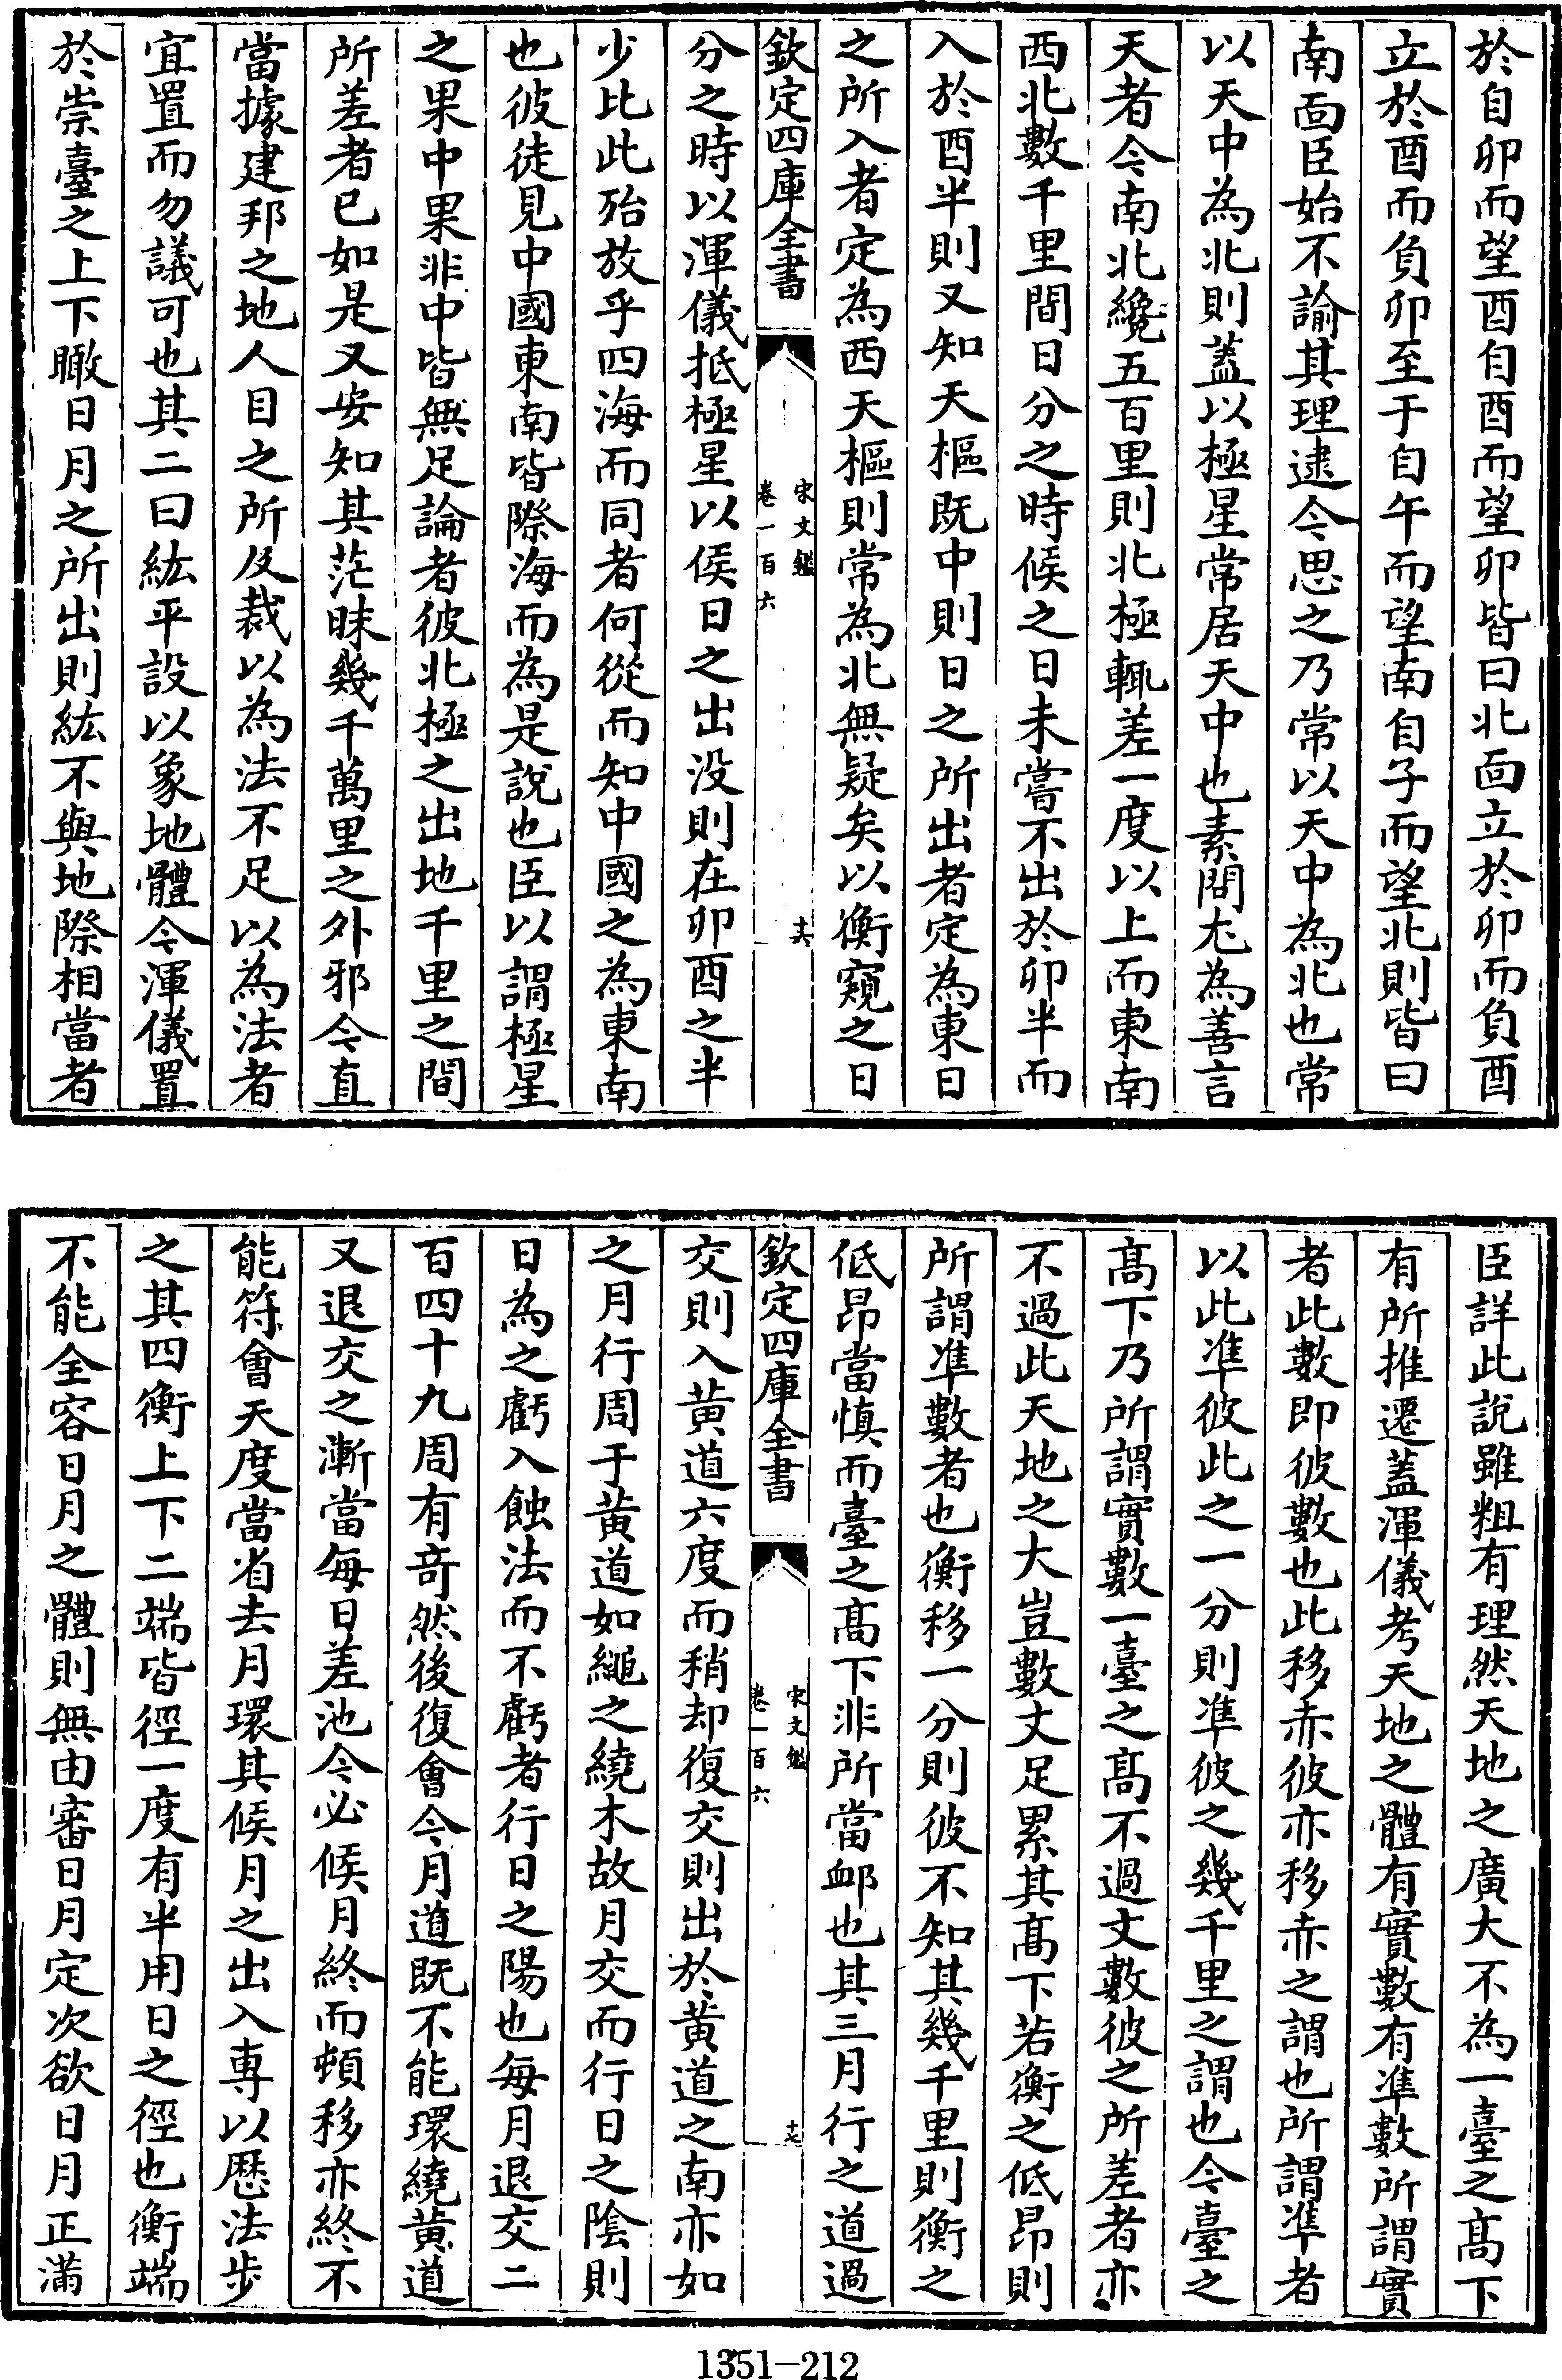 於自卯而望酉自酉而望卯皆曰北面立於卯而負酉
立於酉而負卯至于自午而望南自子而望北則皆曰
南面臣始不諭其理逮今思之乃常以天中為北也常
以天中為北則蓋以極星常居天中也素問尤為善言
天者今南北纔五百里則北極輒差一度以上而東南
西北數千里間日分之時候之日未嘗不出於卯半而
入於酉半則又知天樞既中則日之所出者定為東日
之所入者定為西天樞則常為北無疑矣以衡窺之日
欽定四庫全書
宋文鑑
卷一百六
十六
分之時以渾儀抵極星以候日之出没則在卯酉之半
少比此殆放乎四海而同者何從而知中國之為東南
也彼徒見中國東南皆際海而為是說也臣以謂極星
之果中果非中皆無足論者彼北極之出地千里之間
所差者已如是又安知其茫昧幾千萬里之外邪今直
當據建邦之地人目之所及裁以為法不足以為法者
宜置而勿議可也其二曰紘平設以象地體今渾儀置
於崇臺之上下瞰日月之所出則紘不與地際相當者
臣詳此說雖粗有理然天地之廣大不為一臺之髙下
有所推遷蓋渾儀考天地之體有實數有準數所謂實
者此數即彼數也此移赤彼亦移赤之謂也所謂準者
以此準彼此之一分則準彼之幾千里之謂也今臺之
髙下乃所謂實數一臺之髙不過丈數彼之所差者亦
不過此天地之大豈數丈足累其髙下若衡之低昂則
所謂準數者也衡移一分則彼不知其幾千里則衡之
低昂當慎而臺之髙下非所當䘏也其三月行之道過
欽定四庫全書
宋文鑑
卷一百六
十七
交則入黄道六度而稍却復交則出於黄道之南亦如
之月行周于黄道如繩之繞木故月交而行日之陰則
日為之虧入蝕法而不虧者行日之陽也每月退交二
百四十九周有竒然後復會今月道既不能環繞黄道
又退交之漸當每日差池今必候月終而頓移亦終不
能符㑹天度當省去月環其候月之出入專以厯法步
之其四衡上下二端皆徑一度有半用日之徑也衡端
不能全容日月之體則無由審日月定次欲日月正滿
1351-212